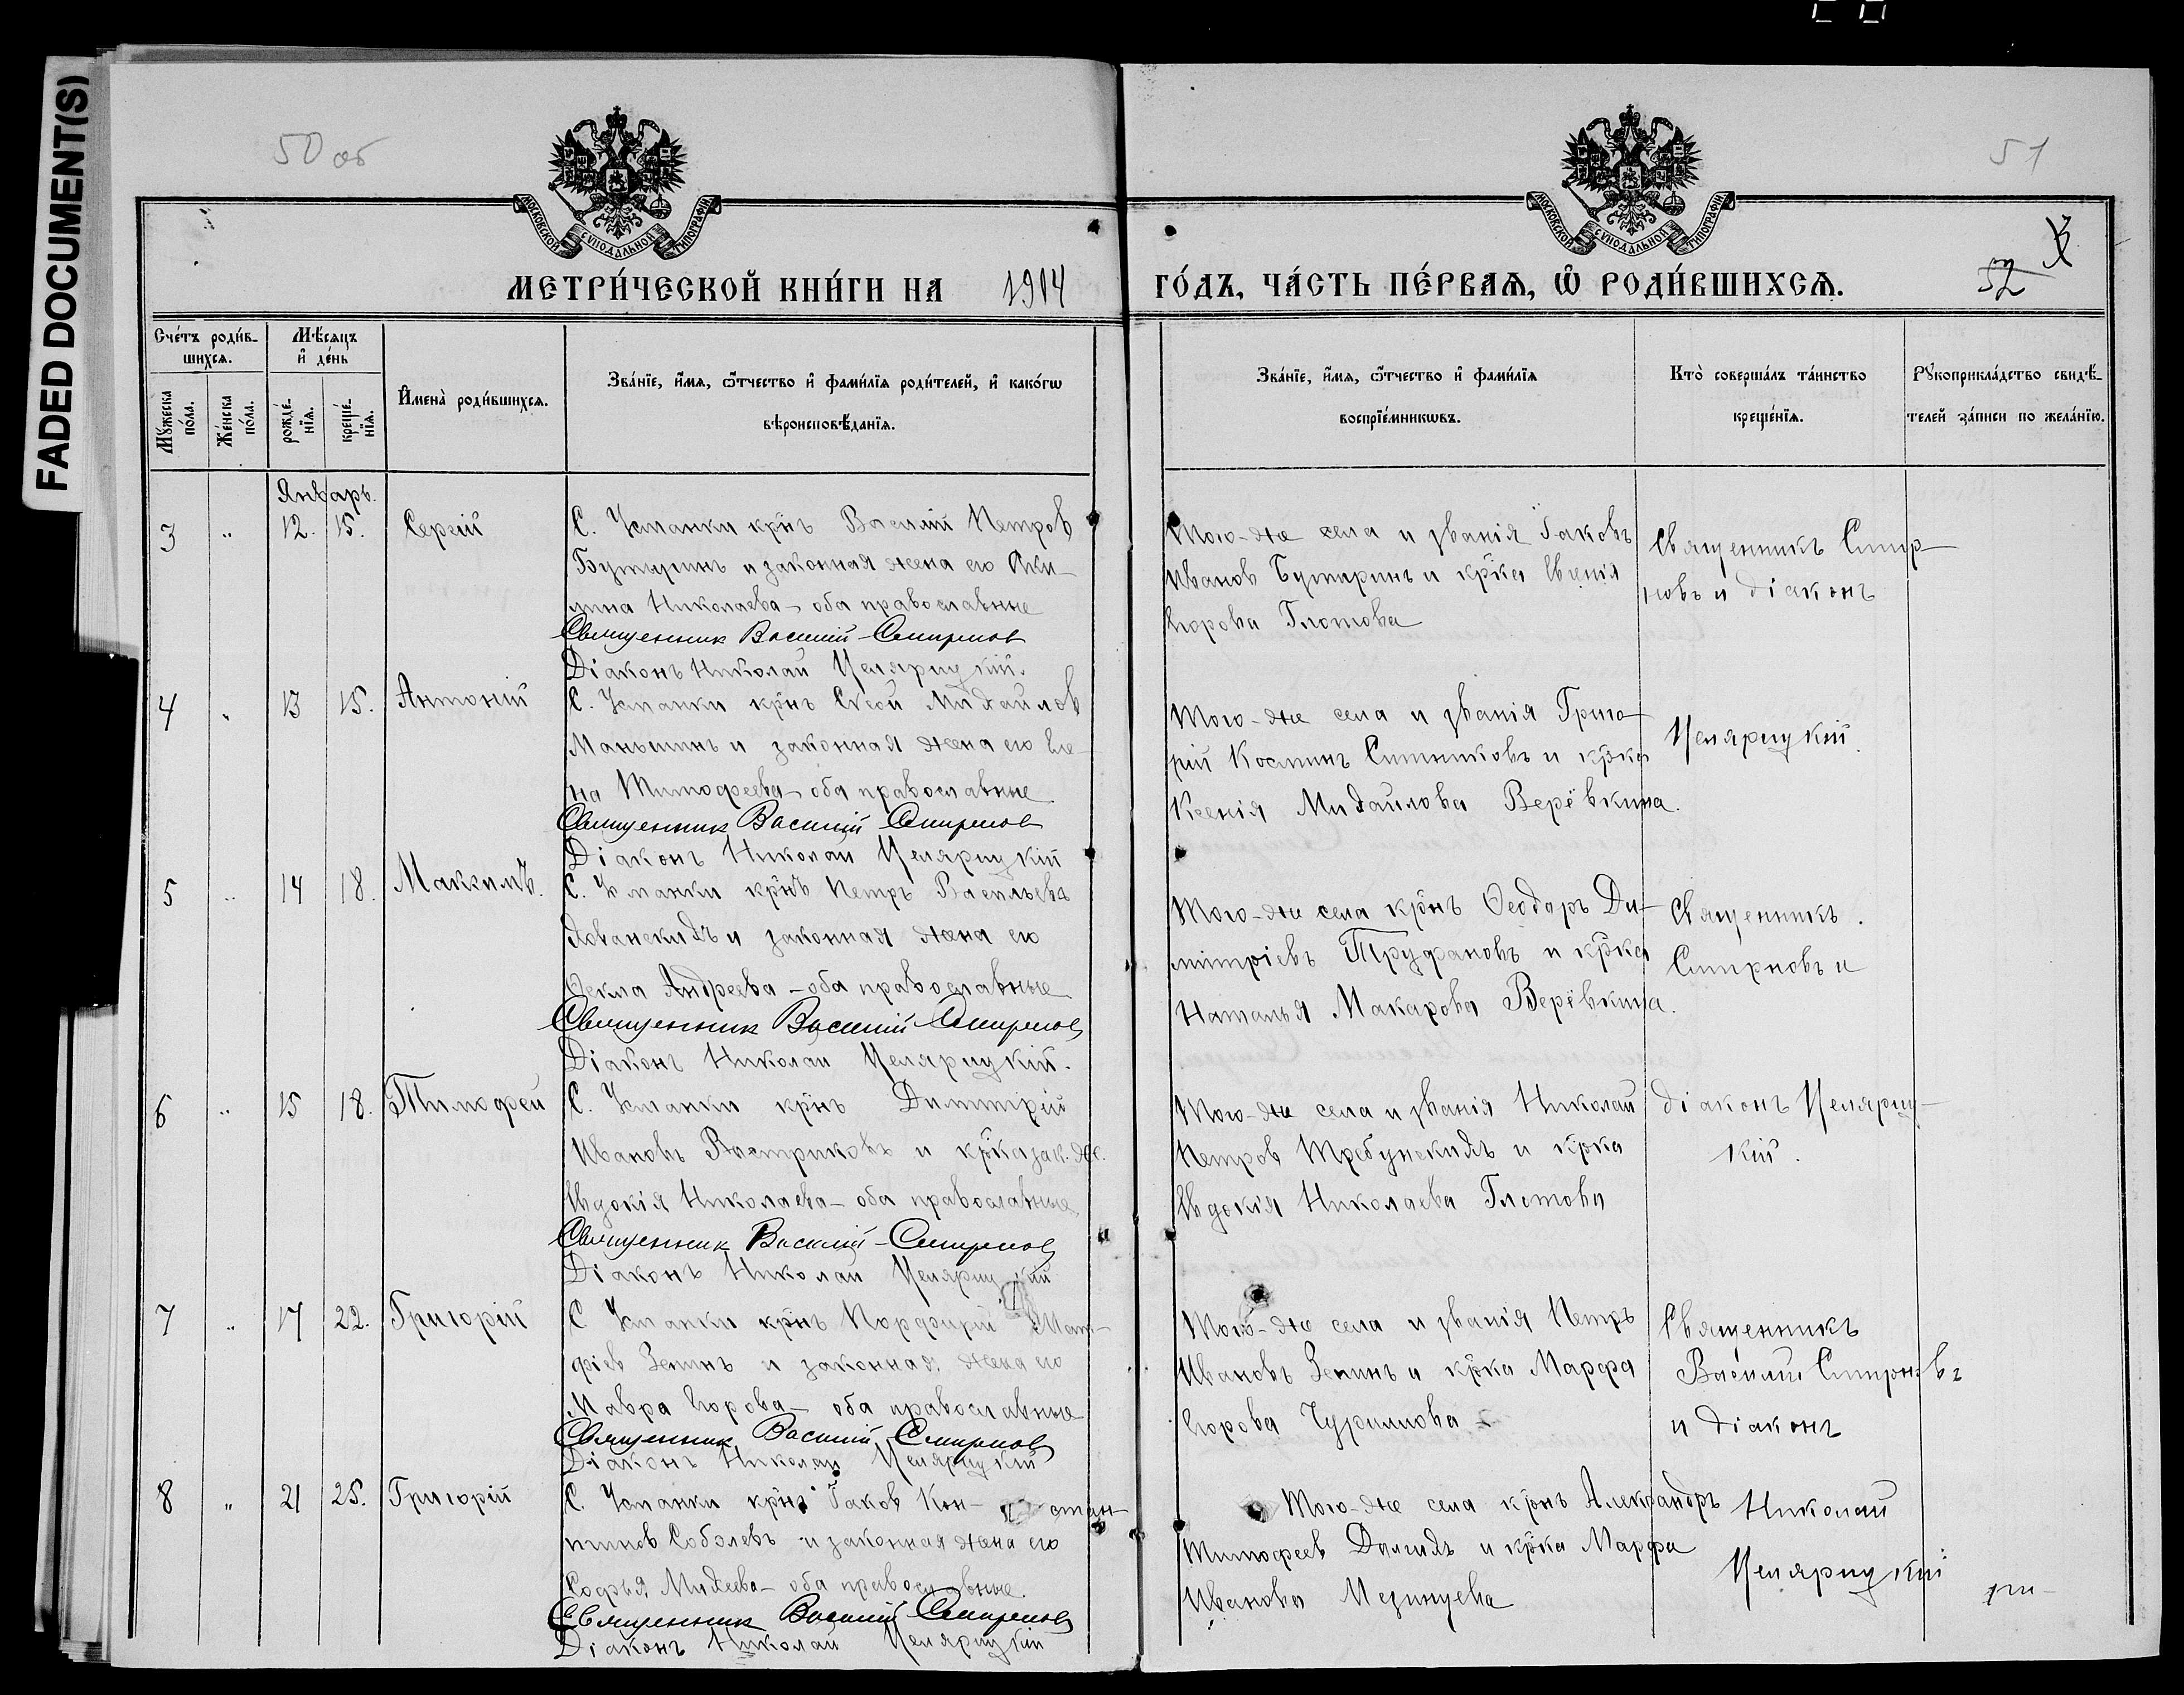 FADED DOCUMENT(S)
50 об
51
МОСКОВСКОЙ СѴНОДАЛЬНОЙ ТИПОГРАФІИ
МОСКОВСКОЙ СѴНОДАЛЬНОЙ ТИПОГРАФІИ
52
МЕТРИ́ЧЕСКОЙ КНИ́ГИ НА 1914 ГО́ДЪ, ЧА́СТЬ ПЕ́РВАЯ, Ѽ РОДИ́ВШИХСЯ.
Сче́тъ роди́в-
шихся.
Мѣ́сяцъ
и҆ де́нь
Мꙋ́жеска
по́ла.
Же́нска
по́ла.
рожде́-
нїя.
креще́-
нїя.
И҆мена̀ роди́вшихся.
Зва́нїе, и҆́мя, ѻ҆́тчество и҆ фами́лїя роди́телей, и҆ како́гѡ
вѣроисповѣ́данїя.
Зва́нїе, и҆́мя, ѻ҆́тчество и҆ фами́лїя
воспрїе́мникѡвъ.
Кто̀ соверша́лъ та́инство
креще́нїя.
Рꙋкоприкла́дство свидѣ́-
телей за́писи по жела́нїю.
Январь.
3 " 12. 15. Сергій
С. Усманки крнъ Василій Петров
Бутыринъ и законная жена его Аки-
лина Николаева – оба православные
Священник Василий Смирнов
Діаконъ Николай Целярицкій.
Того-же села и званія Іаковъ
Иванов Бутыринъ и крка Евгенія
Егорова Глотова
Священникъ Смир-
новъ и діаконъ
4 " 13 15. Антоній
С. Усманки крнъ Михаилов
Маньшинъ и законная жена его Еле-
на Тимофеева – оба православные
Священник Василий Смирнов
Діаконъ Николай Целярицкій
Того-же села и званія Григо-
рій Костинъ Ситниковъ и крка
Ксенія Михаилова Верёвкина.
Целярицкій.
5 " 14 18. Максимъ.
С. Усманки крнъ Петръ Васильевъ
и законная жена его
Ѳекла Андреева – оба православные
Священник Василий Смирнов
Діаконъ Николай Целярицкій.
Того-же села крнъ Ѳеодоръ Ди-
митріевъ Труфановъ и крка
Наталья Макарова Верёвкина.
Священникъ.
Смирновъ и
6 " 15 18. Тимофей
С. Усманки крнъ Димитрій
Ивановъ Востриковъ и крка зак. ж.
Евдокія Николаева – оба православные
Священник Василий Смирнов
Діаконъ Николай Целярицкій
Того-же села и званія Николай
Петров Требунскихъ и крка
Евдокія Николаева Глотова
діаконъ Целяриц-
кій.
7 " 17 22. Григорій
С Усманки крнъ Порфирій Мат-
фіев Зенинъ и законная жена его
Мавра Егорова – оба православные
Священник Василий Смирнов
Діаконъ Николай Целярицкій
Того-же села и званія Петръ
Ивановъ Зенинъ и крка Марфа
Егорова Чурилова
Священникъ
Василій Смирновъ
и діаконъ
8 " 21 25. Григорій
С. Усманки крнъ Іаков Кон- стан-
тинов Соболевъ и законная жена его
Софья Михеева – оба православные.
Священник Василий Смирнов
Діаконъ Николай Целярицкій
Того-же села крнъ Александръ
Тимофеев и крка Марфа
Иванова Мезинцева
Николай
Целярицкій